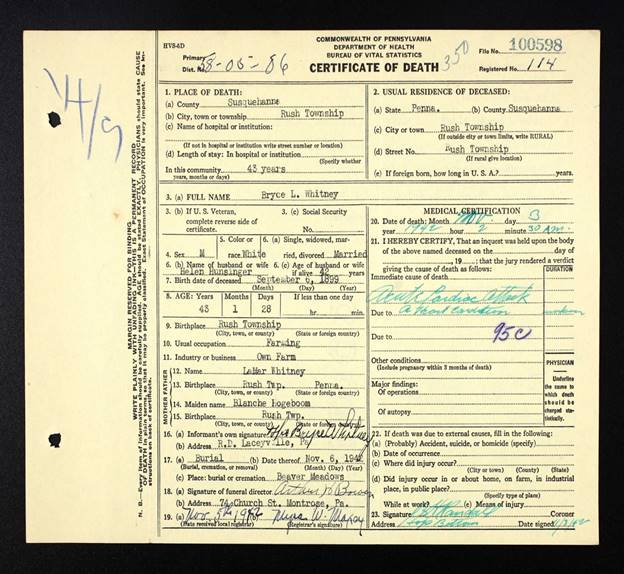 HVS-6D
COMMONWEALTH OF PENNSYLVANIA
DEPARTMENT OF HEALTH
BUREAU OF VITAL STATISTICS
CERTIFICATE OF DEATH
350
Primary
Dist. No. 58-05-86
File No. 100598
Registered No. 114
1. PLACE OF DEATH:
(a) County Susquehanna
(b) City, town or township Rush Township
(c) Name of hospital or institution:
(If not in hospital or institution write street number or location)
(d) Length of stay: In hospital or institution
(Specify whether
In this community 43 years
years, months or days)
2. USUAL RESIDENCE OF DECEASED:
(a) State Penna. (b) County Susquehanna
(c) City or town Rush Township
(If outside city or town limits, write RURAL)
(d) Street No. Rush Township
(If rural give location)
(e) If foreign born, how long in U. S. A.? years.
3. (a) FULL NAME Bryce L. Whitney
3. (b) If U. S. Veteran,
complete reverse side of
certificate.
3. (c) Social Security
No.
4. Sex M
5. Color or
race White
6. (a) Single, widowed, mar-
ried, divorced Married
6. (b) Name of husband or wife
Helen Hunsinger
6. (c) Age of husband or wife
if alive 42 years
7. Birth date of deceased September 6, 1899
(Month) (Day) (Year)
8. AGE: Years Months Days If less than one day
43 1 28 hr. min.
9. Birthplace Rush Township
(City, town, or county) (State or foreign country)
10. Usual occupation Farming
11. Industry or business Own Farm
MOTHER FATHER
12. Name LaMar Whitney
13. Birthplace Rush Twp. Penna.
(City, town, or county) (State or foreign country)
14. Maiden name Blanche Hogeboom
15. Birthplace Rush Twp.
(City, town, or county) (State or foreign country)
16. (a) Informant's own signature Mrs Bryce Whitney
(b) Address R.D. Laceyville, Pa
17. (a) Burial (b) Date thereof Nov. 6, 1942
(Burial, cremation, or removal) (Month) (Day) (Year)
(c) Place: burial or cremation Beaver Meadows
18. (a) Signature of funeral director
(b) Address 74 Church St. Montrose, Pa.
19. (a) Nov. 5th 1942
(Date received local registrar) (Registrar's signature)
MEDICAL CERTIFICATION
20. Date of death: Month Nov. day 3
year 1942 hour 2 minute 30 A.M.
21. I HEREBY CERTIFY, That an inquest was held upon the body
of the above named deceased on the day of
19 ; that the jury rendered a verdict
giving the cause of death as follows: DURATION
Immediate cause of death
Acute Cardiac attack
Due to
Due to 95c
Other conditions
(Include pregnancy within 3 months of death)
Major findings:
Of operations
Of autopsy
PHYSICIAN
Underline
the cause to
which death
should be
charged sta-
tistically.
22. If death was due to external causes, fill in the following:
(a) (Probably) Accident, suicide, or homicide (specify)
(b) Date of occurrence
(c) Where did injury occur?
(City or town) (County) (State)
(d) Did injury occur in or about home, on farm, in industrial
place, in public place?
(Specify type of place)
While at work? (e) Means of injury
23. Signature Coroner
Address Hop Bottom Date signed
MARGIN RESERVED FOR BINDING
WRITE PLAINLY WITH UNFADING INK—THIS IS A PERMANENT RECORD